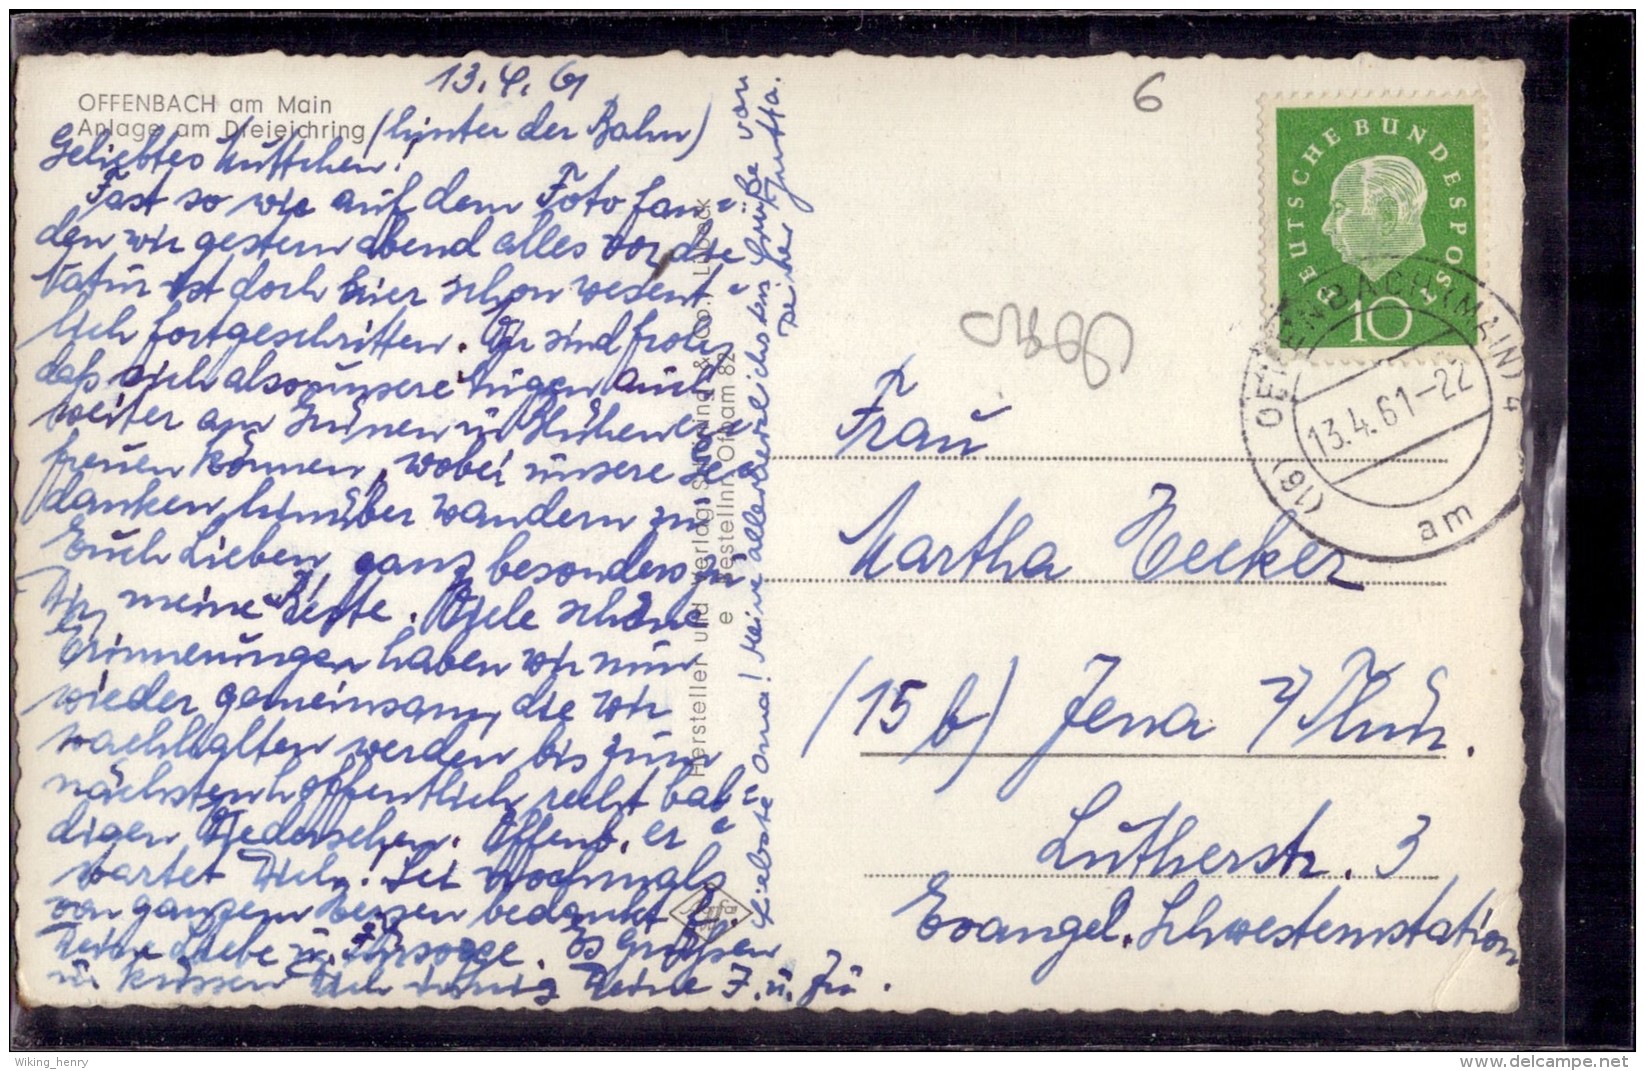 13.4.61
OFFENBACH am Main
Anlage am Dreieichring (hinter der Bahn)
Geliebtes Muttchen!
Fast so wie auf dem Foto fan=
den wir gestern abend alles vor, die
Natur ist doch hier schon wesent=
lich fortgeschritten. Wir sind froh,
daß sich also unsere Augen auch
weiter am Grünen u Blühen er=
freuen können, wobei unsere Ge=
danken hinüber wandern zu
Euch Lieben, ganz besonders zu
Dir, meine Beste. Viele schöne
Erinnerungen haben wir nun
wieder gemeinsam, die wir
wachhalten werden bis zum
nächsten hoffentlich recht bal=
digen Wiedersehen. Offenb. er=
wartet Dich! Sei nochmals
von ganzem Herzen bedankt f.
Deine Liebe u. Fürsorge. Es grüßen
u. küssen Dich innig Deine J. u. Jü.
Liebste Oma! Meine allerherzlichsten Grüße von
Deiner Jutta.
Hersteller und Verlag: Schöning & Co., Lübeck
e Bestellnr. Ofbam 82
6
DEUTSCHE BUNDESPOST
10
(16) OFFENBACH (MAIN) 4
13.4.61-22
am
Frau
Martha Hecker
(15b) Jena / Thür.
Lutherstr. 3
Evangel. Schwesternstation
Wiking_henry
www.delcampe.net